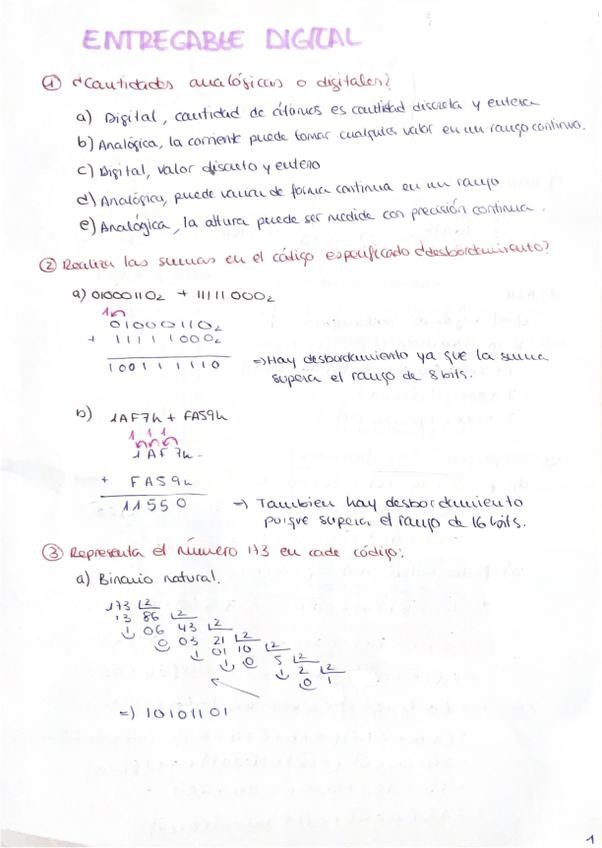 ENTREGABLE DIGITAL
① ¿Cantidades analógicas o digitales?
a) Digital, cantidad de átomos es cantidad discreta y entera
b) Analógica, la corriente puede tomar cualquier valor en un rango continuo.
c) Digital, valor discreto y entero
d) Analógica, puede variar de forma continua en un rango
e) Analógica, la altura puede ser medida con precisión continua.
② Realiza las sumas en el código especificado ¿desbordamiento?
a) 01000110₂ + 11111000₂
1
01000110₂
+ 11111000₂
100111110
⇒ Hay desbordamiento ya que la suma
supera el rango de 8 bits.
b) 1AF7h + FA59h
1 1 1
1AF7h
+ FA59h
11550
⇒ Tambien hay desbordamiento
porque supera el rango de 16 bits.
③ Representa el número 173 en cada código:
a) Binario natural.
173 2
13 86 2
1 06 43 2
0 03 21 2
1 01 10 2
1 0 5 2
1 2 2
0 1
⇒ 10101101
1